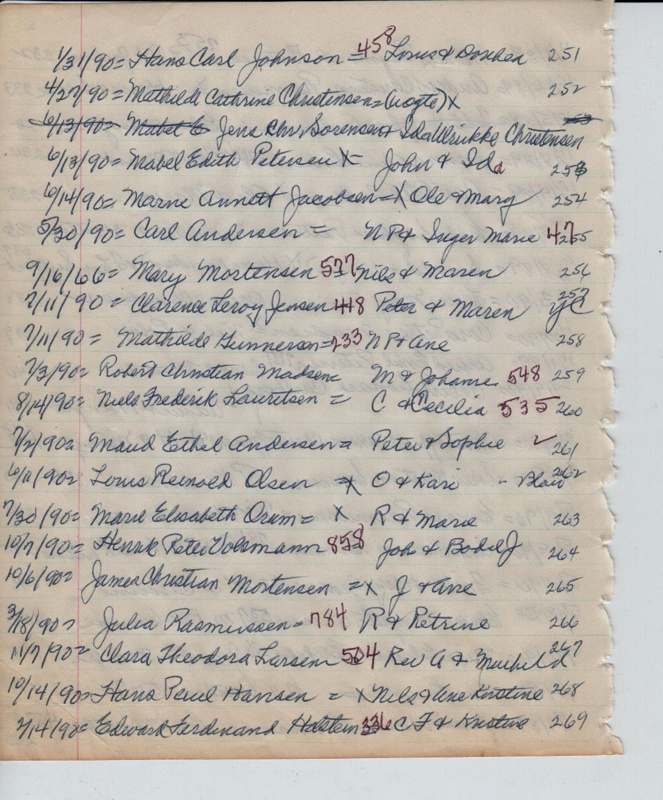 1/31/90= Hans Carl Johnson = 458 Louis & Dorthea 251
4/27/90= Mathilde Cathrine Christensen = (Vogte) X 252
6/13/90= Mabel E Jens Chr Sorensen & Ida Ulrikke Christensen 253
6/13/90= Mabel Edith Petersen X- John & Ida 253
6/14/90= Marne Annett Jacobsen = X Ole & Mary 254
5/30/90= Carl Andersen = N P & Inger Marie 47 255
9/16/66= Mary Mortensen 577 Nils & Maren 256
2/11/90= Clarence Leroy Jensen 418 Peter & Maren 257 YC
7/11/90= Mathilde Gunnerson = 233 N P & Ane 258
7/3/90= Robert Christian Madsen = M & Johanne 548 259
8/14/90= Niels Frederik Lauritsen = C & Cecilia 535 260
7/2/90= Maud Ethel Andersen = Peter & Sophie ✓ 261
6/11/90= Louis Reinold Olsen = X O & Kari - Blair 262
7/30/90= Marie Elisabeth Orum = X R & Marie 263
10/7/90= Henrik Peter Volsmann 858 Joh & Bodel J 264
10/6/90= James Christian Mortensen = X J & Ane 265
3/18/90= Julia Rasmussen = 784 R & Petrine 266
11/7/90= Clara Theodora Larsen 504 Rev A & 267
10/14/90= Hans Paul Hansen = X Nils & Ane Kirstine 268
2/14/90= Edward Ferdinand Holstein 336 C F & Kirstine 269